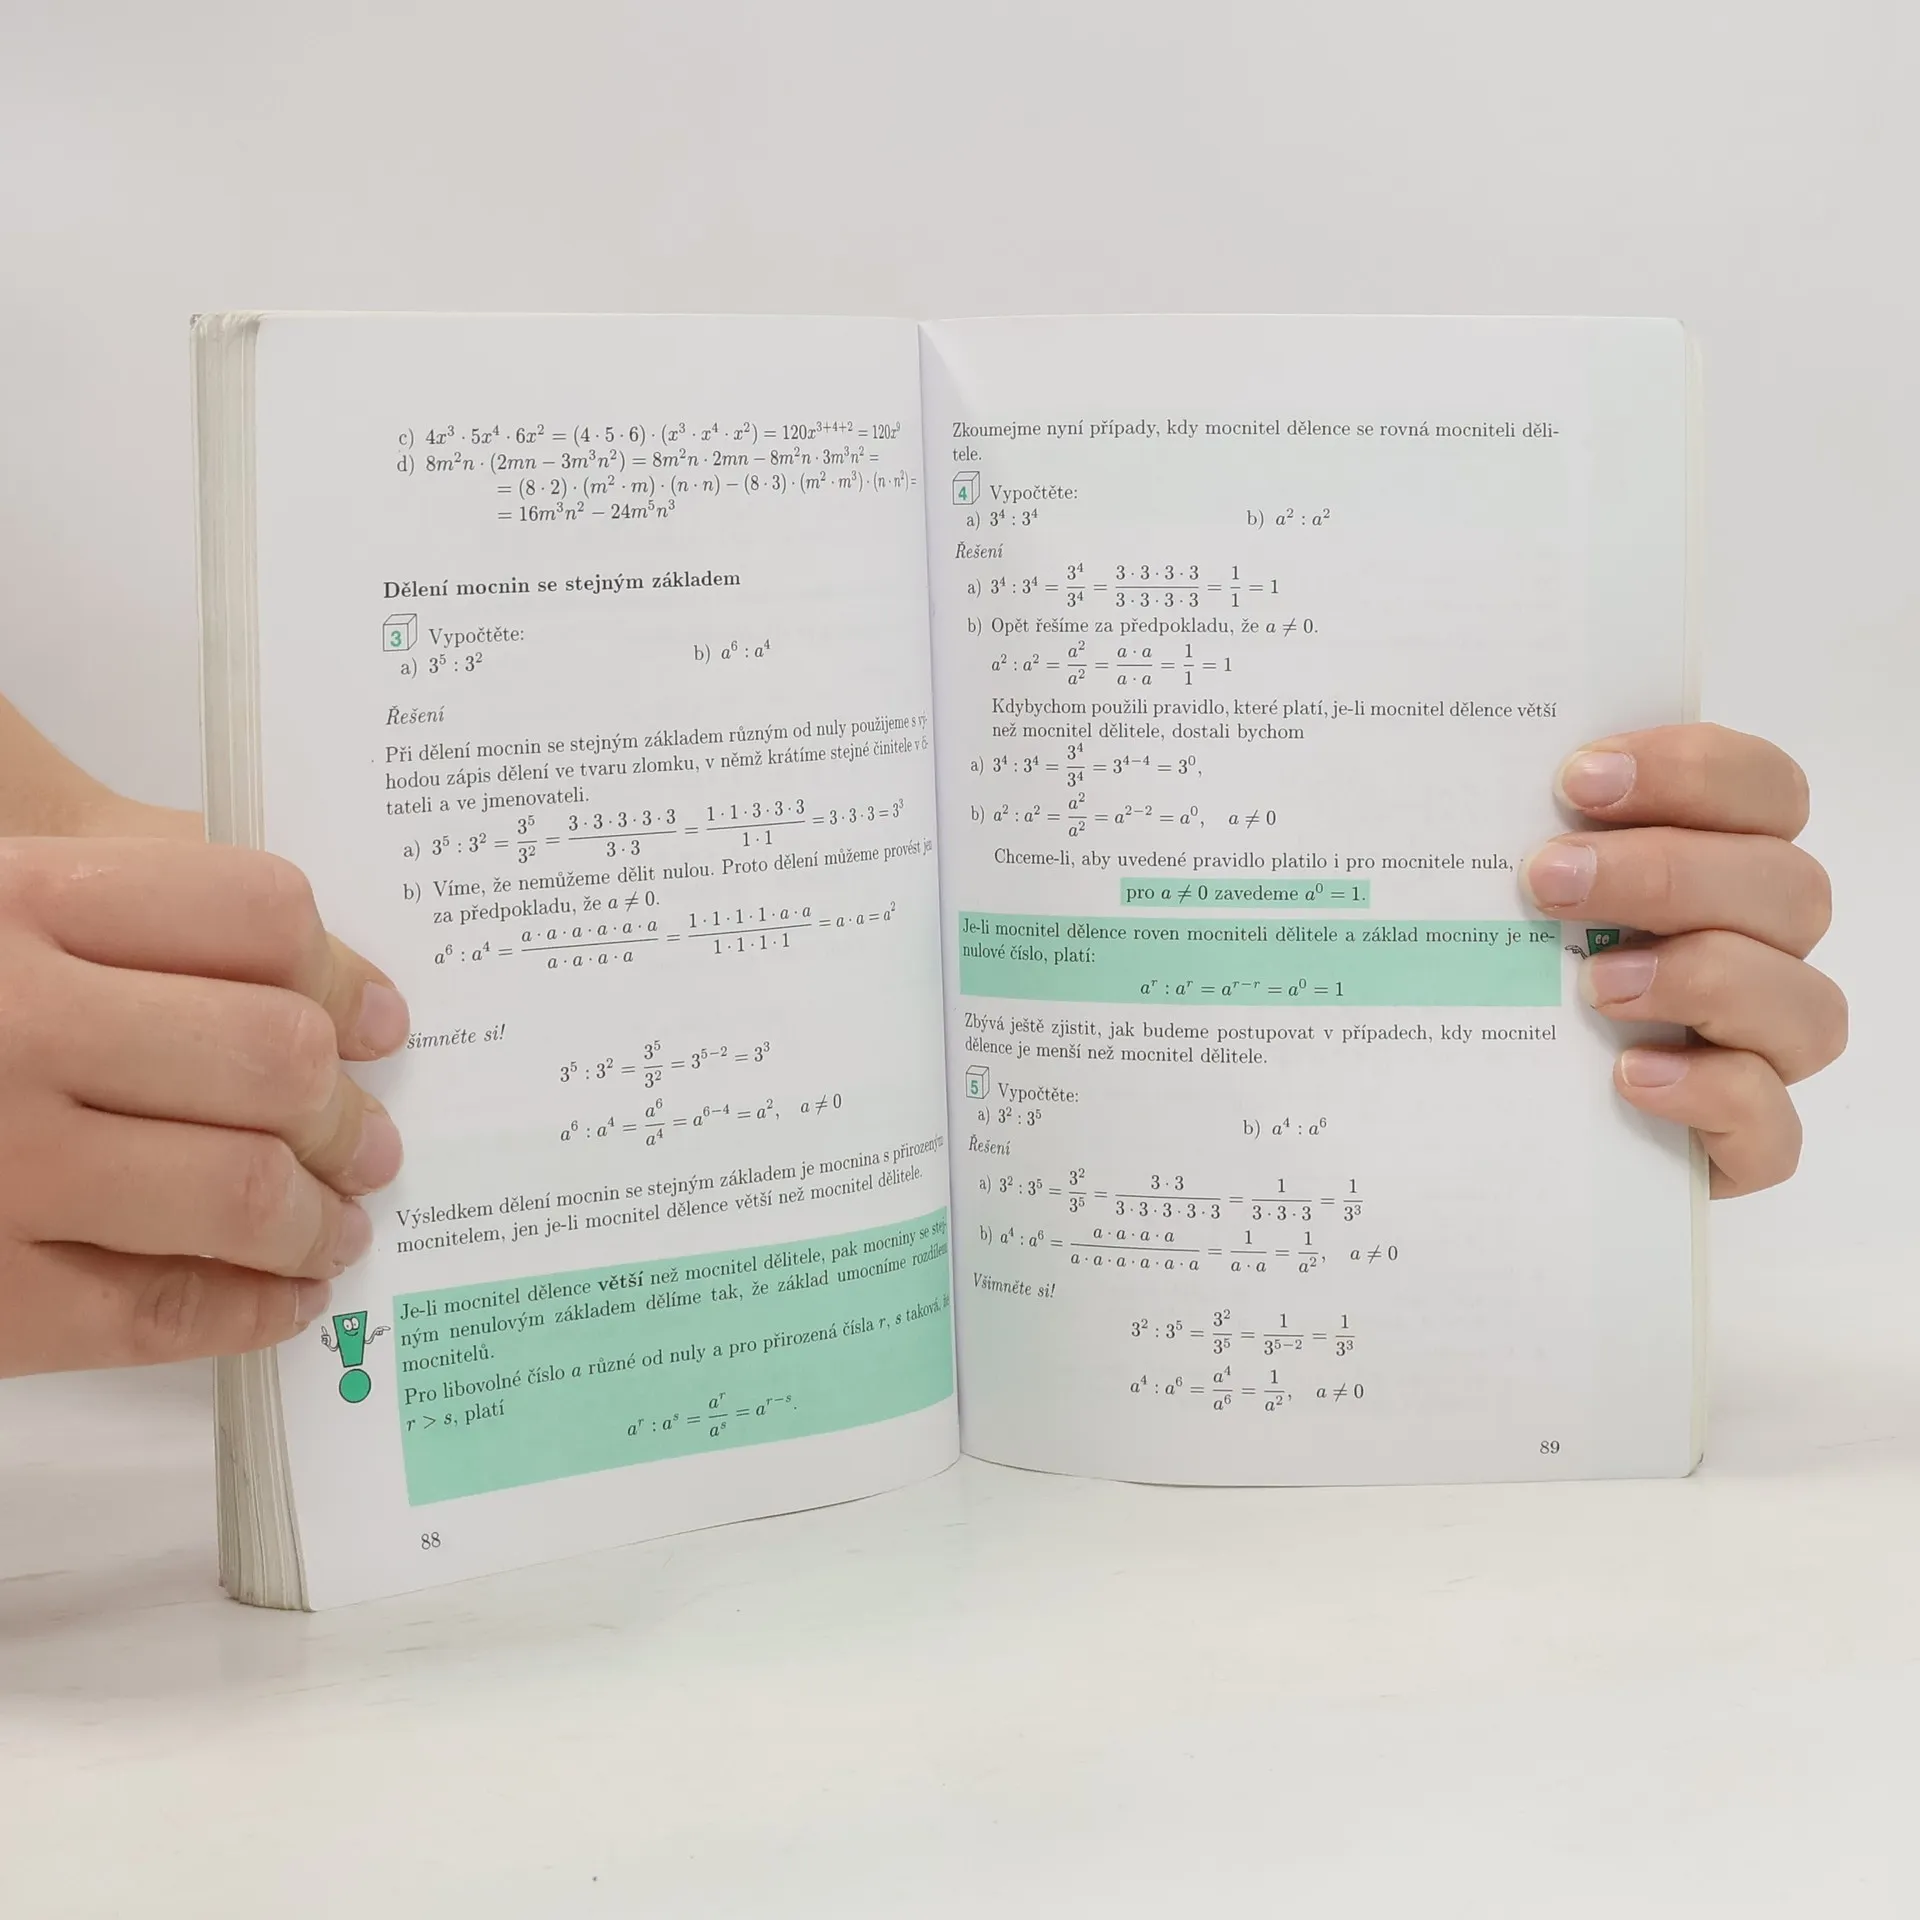 c) 4x³ · 5x⁴ · 6x² = (4 · 5 · 6) · (x³ · x⁴ · x²) = 120x³⁺⁴⁺² = 120x⁹
d) 8m²n · (2mn − 3m³n²) = 8m²n · 2mn − 8m²n · 3m³n² =
= (8 · 2) · (m² · m) · (n · n) − (8 · 3) · (m² · m³) · (n · n²) =
= 16m³n² − 24m⁵n³
Dělení mocnin se stejným základem
3 Vypočtěte:
a) 3⁵ : 3² b) a⁶ : a⁴
Řešení
Při dělení mocnin se stejným základem různým od nuly použijeme s vý-
hodou zápis dělení ve tvaru zlomku, v němž krátíme stejné činitele v či-
tateli a ve jmenovateli.
a) 3⁵ : 3² = 3⁵/3² = (3 · 3 · 3 · 3 · 3)/(3 · 3) = (1 · 1 · 3 · 3 · 3)/(1 · 1) = 3 · 3 · 3 = 3³
b) Víme, že nemůžeme dělit nulou. Proto dělení můžeme provést jen
za předpokladu, že a ≠ 0.
a⁶ : a⁴ = (a · a · a · a · a · a)/(a · a · a · a) = (1 · 1 · 1 · 1 · a · a)/(1 · 1 · 1 · 1) = a · a = a²
šimněte si!
3⁵ : 3² = 3⁵/3² = 3⁵⁻² = 3³
a⁶ : a⁴ = a⁶/a⁴ = a⁶⁻⁴ = a², a ≠ 0
Výsledkem dělení mocnin se stejným základem je mocnina s přirozeným
mocnitelem, jen je-li mocnitel dělence větší než mocnitel dělitele.
Je-li mocnitel dělence větší než mocnitel dělitele, pak mocniny se stej-
ným nenulovým základem dělíme tak, že základ umocníme rozdílem
mocnitelů.
Pro libovolné číslo a různé od nuly a pro přirozená čísla r, s taková, že
r > s, platí
aʳ : aˢ = aʳ/aˢ = aʳ⁻ˢ.
88
Zkoumejme nyní případy, kdy mocnitel dělence se rovná mocniteli děli-
tele.
4 Vypočtěte:
a) 3⁴ : 3⁴ b) a² : a²
Řešení
a) 3⁴ : 3⁴ = 3⁴/3⁴ = (3 · 3 · 3 · 3)/(3 · 3 · 3 · 3) = 1/1 = 1
b) Opět řešíme za předpokladu, že a ≠ 0.
a² : a² = a²/a² = (a · a)/(a · a) = 1/1 = 1
Kdybychom použili pravidlo, které platí, je-li mocnitel dělence větší
než mocnitel dělitele, dostali bychom
a) 3⁴ : 3⁴ = 3⁴/3⁴ = 3⁴⁻⁴ = 3⁰,
b) a² : a² = a²/a² = a²⁻² = a⁰, a ≠ 0
Chceme-li, aby uvedené pravidlo platilo i pro mocnitele nula,
pro a ≠ 0 zavedeme a⁰ = 1.
Je-li mocnitel dělence roven mocniteli dělitele a základ mocniny je ne-
nulové číslo, platí:
aʳ : aʳ = aʳ⁻ʳ = a⁰ = 1
Zbývá ještě zjistit, jak budeme postupovat v případech, kdy mocnitel
dělence je menší než mocnitel dělitele.
5 Vypočtěte:
a) 3² : 3⁵ b) a⁴ : a⁶
Řešení
a) 3² : 3⁵ = 3²/3⁵ = (3 · 3)/(3 · 3 · 3 · 3 · 3) = 1/(3 · 3 · 3) = 1/3³
b) a⁴ : a⁶ = (a · a · a · a)/(a · a · a · a · a · a) = 1/(a · a) = 1/a², a ≠ 0
Všimněte si!
3² : 3⁵ = 3²/3⁵ = 1/3⁵⁻² = 1/3³
a⁴ : a⁶ = a⁴/a⁶ = 1/a², a ≠ 0
89